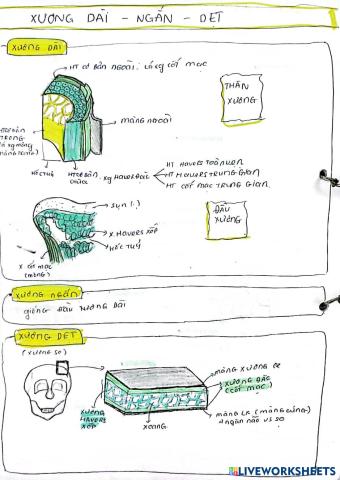 XƯƠNG DÀI - NGẮN - DẸT
XƯƠNG DÀI
HT CƠ BẢN NGOÀI: cốt mạc
THÂN XƯƠNG
MÀNG NGOÀI
HT CƠ BẢN TRONG
HỐC TUỶ
XG HAVERS ĐẶC
HT HAVERS TOÀN VẸN
HT HAVERS TRUNG GIAN
HT CỐT MẠC TRUNG GIAN
SỤN (.)
ĐẦU XƯƠNG
X. HAVERS XỐP
HỐC TUỶ
X CỐT MẠC
(MỎNG)
XƯƠNG NGẮN
giống ĐẦU XƯƠNG DÀI
XƯƠNG DẸT
(XƯƠNG SỌ)
MÀNG XƯƠNG
XƯƠNG ĐẶC
(CỐT MẠC)
MÀNG LK (MÀNG CỨNG)
ngăn não vs sọ
XƯƠNG HAVERS XỐP
LIVEWORKSHEETS